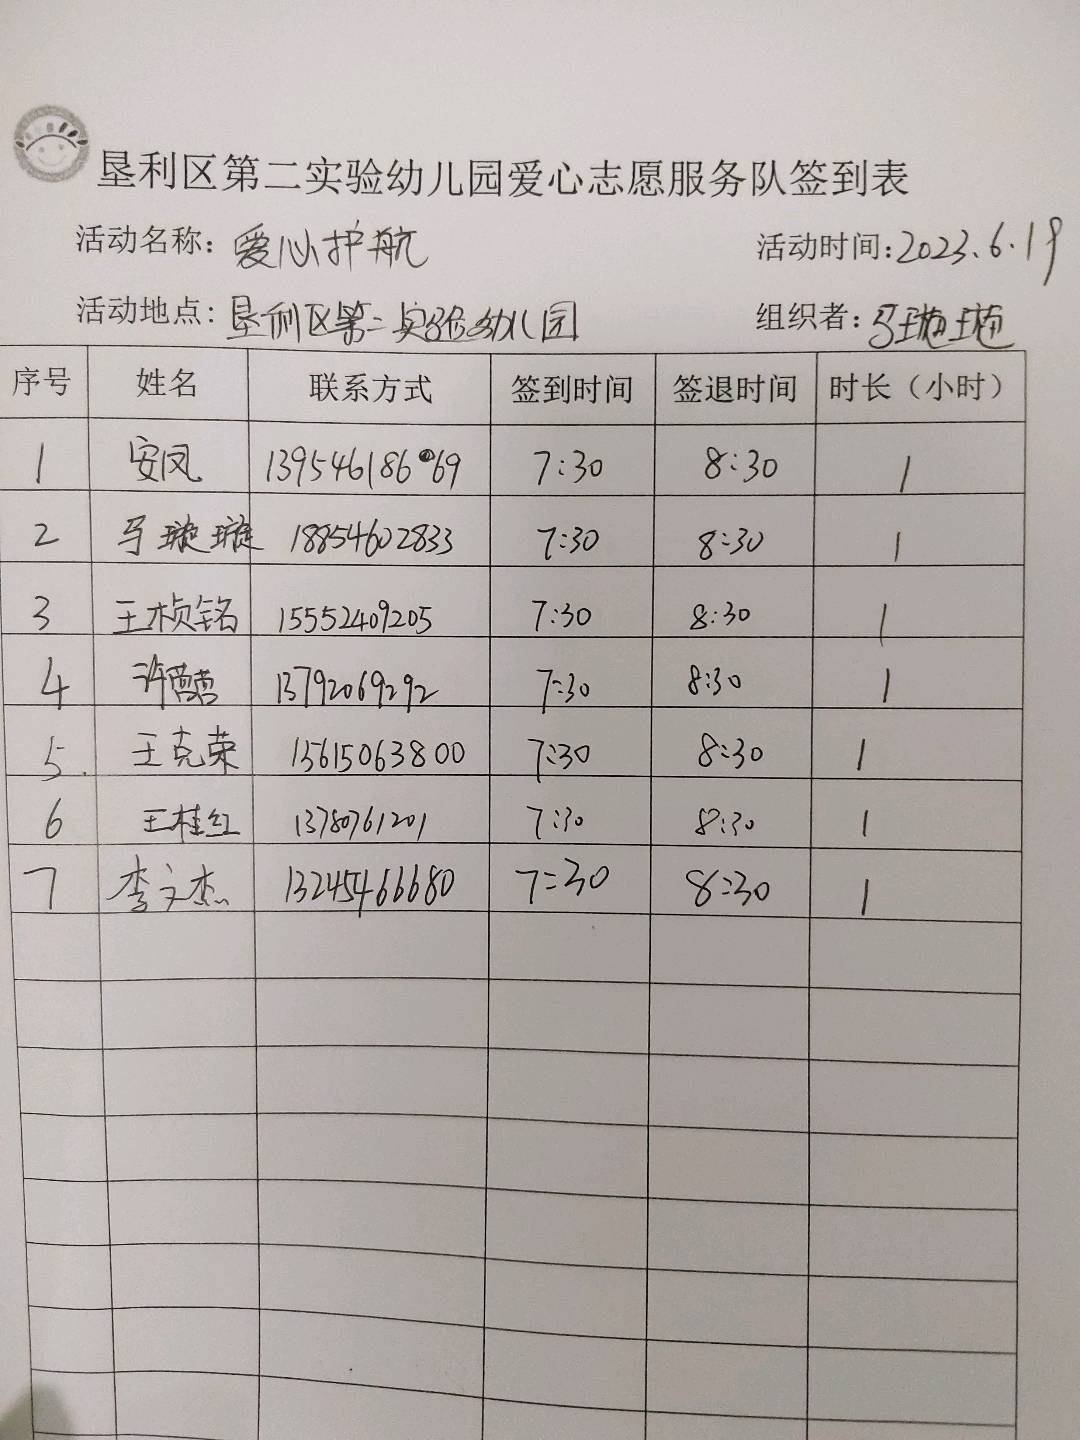 垦利区第二实验幼儿园爱心志愿服务队签到表
活动名称：爱心护航 活动时间：2023.6.19
活动地点：垦利区第二实验幼儿园 组织者：马璇璇
序号 姓名 联系方式 签到时间 签退时间 时长（小时）
1 安凤 13954618669 7:30 8:30 1
2 马璇璇 18854602833 7:30 8:30 1
3 王桢铭 15552409205 7:30 8:30 1
4 许营营 13792069292 7:30 8:30 1
5. 王克荣 15615063800 7:30 8:30 1
6 王桂红 13780761201 7:30 8:30 1
7 李文杰 13245466680 7:30 8:30 1